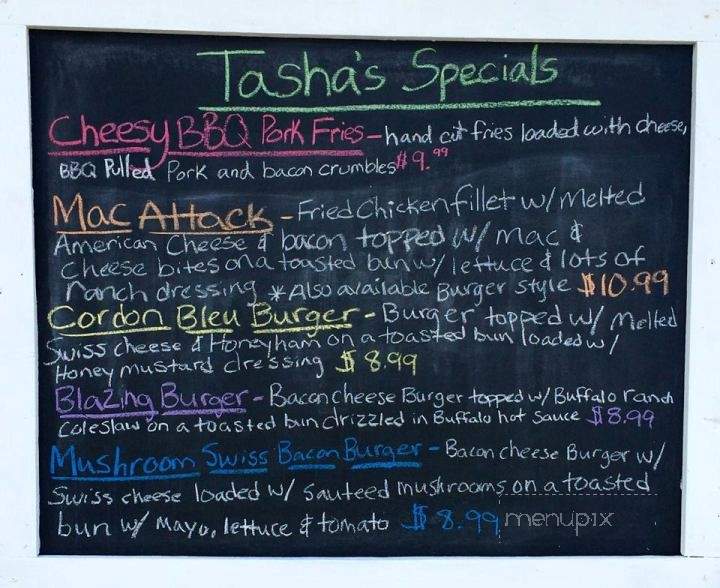 Tasha's Specials
Cheesy BBQ Pork Fries - hand cut fries loaded with cheese,
BBQ Pulled Pork and bacon crumbles $9.99
Mac Attack - Fried Chicken fillet w/ Melted
American Cheese & bacon topped w/ mac &
cheese bites on a toasted bun w/ lettuce & lots of
ranch dressing *Also available Burger style $10.99
Cordon Bleu Burger - Burger topped w/ Melted
Swiss cheese & Honey ham on a toasted bun loaded w/
Honey mustard dressing $8.99
Blazing Burger - Bacon cheese Burger topped w/ Buffalo ranch
coleslaw on a toasted bun drizzled in Buffalo hot sauce $8.99
Mushroom Swiss Bacon Burger - Bacon cheese Burger w/
Swiss cheese loaded w/ sauteed mushrooms on a toasted
bun w/ Mayo, lettuce & tomato $8.99 menupix